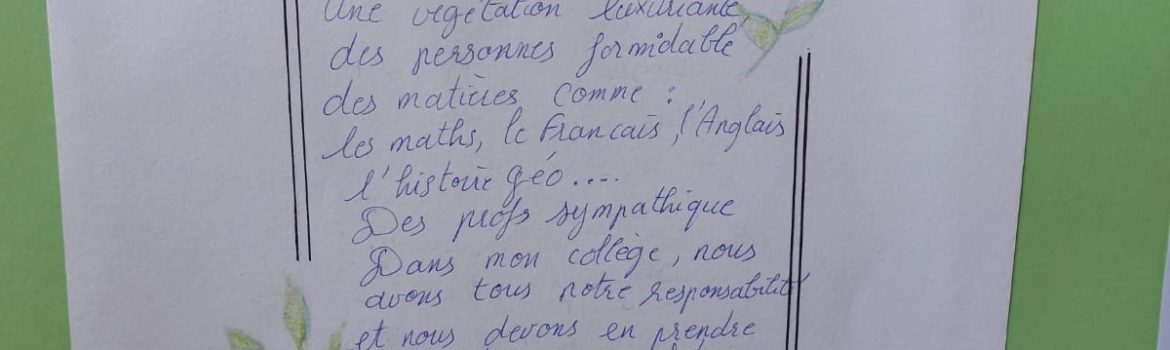 Une végétation luxuriante
des personnes formidable
des matières comme :
les maths, le Francais, l'Anglais
l'histoire géo....
Des profs sympathique
Dans mon collège, nous
avons tous notre responsabilité
et nous devons en prendre